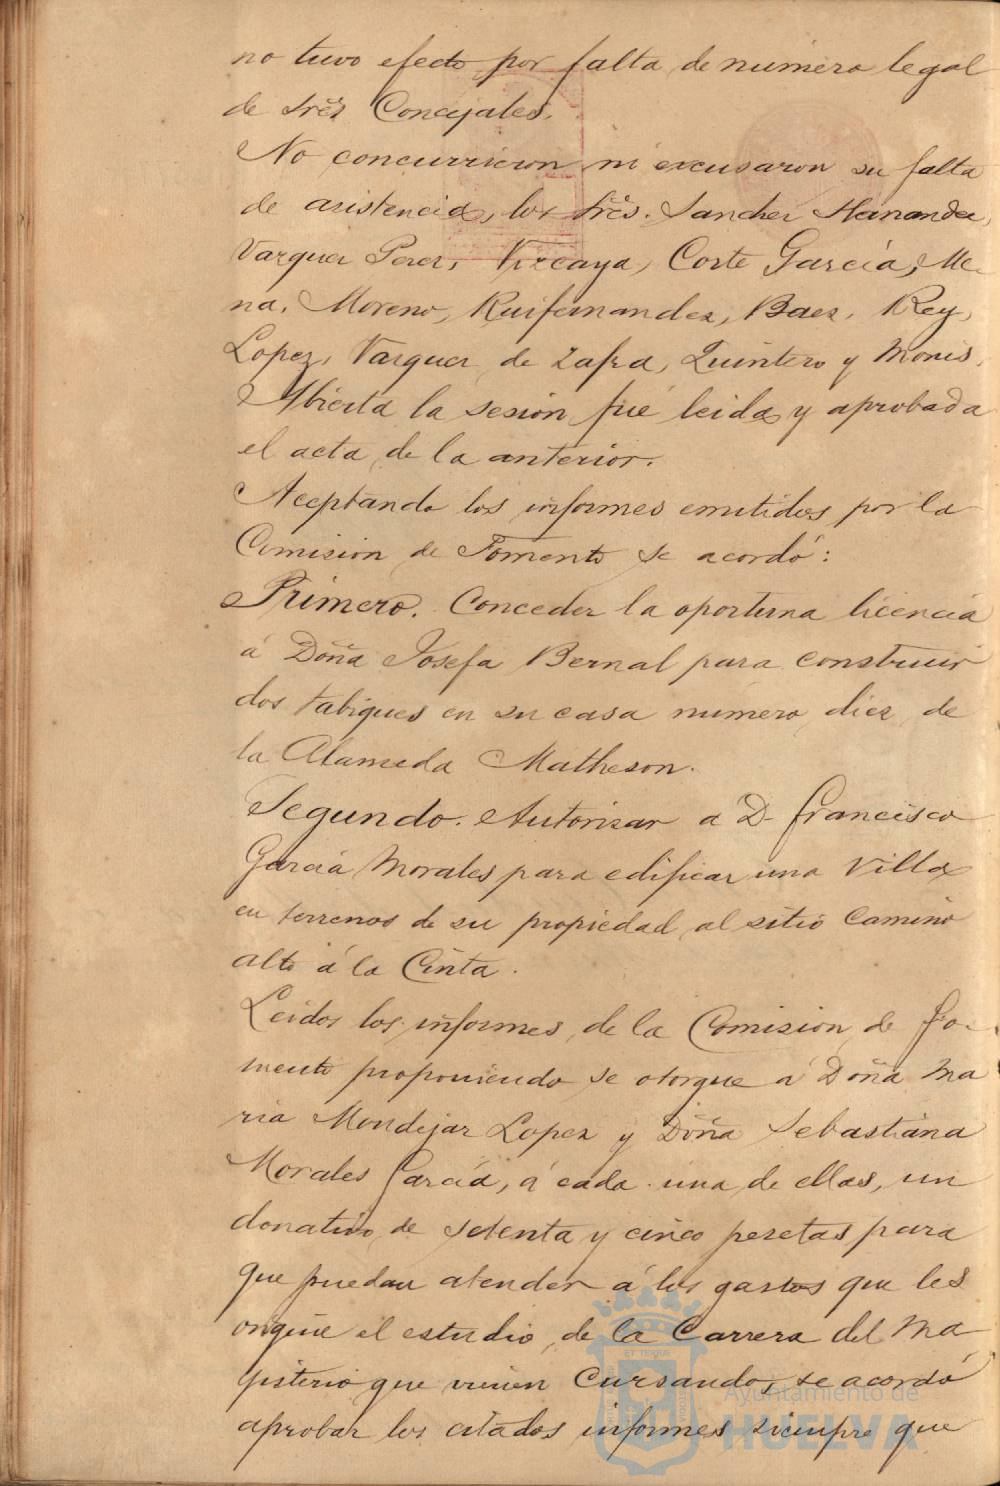 no tuvo efecto por falta de número legal
de Srēs Concejales.
No concurrieron ni excusaron su falta
de asistencia, los Srēs. Sanchez Hernandez,
Vazquez Perez, Vizcaya, Corte García, Me-
na, Moreno, Ruifernandez, Baez, Rey,
Lopez, Vazquez de Zafra, Quintero y Monis.
Abierta la sesión fué leida y aprobada
el acta de la anterior.
Aceptando los informes emitidos por la
Comision de Fomento se acordó:
Primero. Conceder la oportuna licencia
á Doña Josefa Bernal para construir
dos tabiques en su casa número diez de
la Alameda Matheson.
Segundo. Autorizar a D. Francisco
García Morales para edificar una Villa
en terrenos de su propiedad al sitio Camino
alto á la Cinta.
Leidos los informes de la Comision de Fo-
mento proponiendo se otorgue á Doña Ma
ria Mondejar Lopez y Doña Sebastiana
Morales García, á cada una de ellas, un
donativo de setenta y cinco pesetas para
que puedan atender á los gastos que les
origine el estudio de la Carrera del Ma
gisterio que vienen Cursando, se acordó
aprobar los citados informes siempre que
Ayuntamiento de
HUELVA